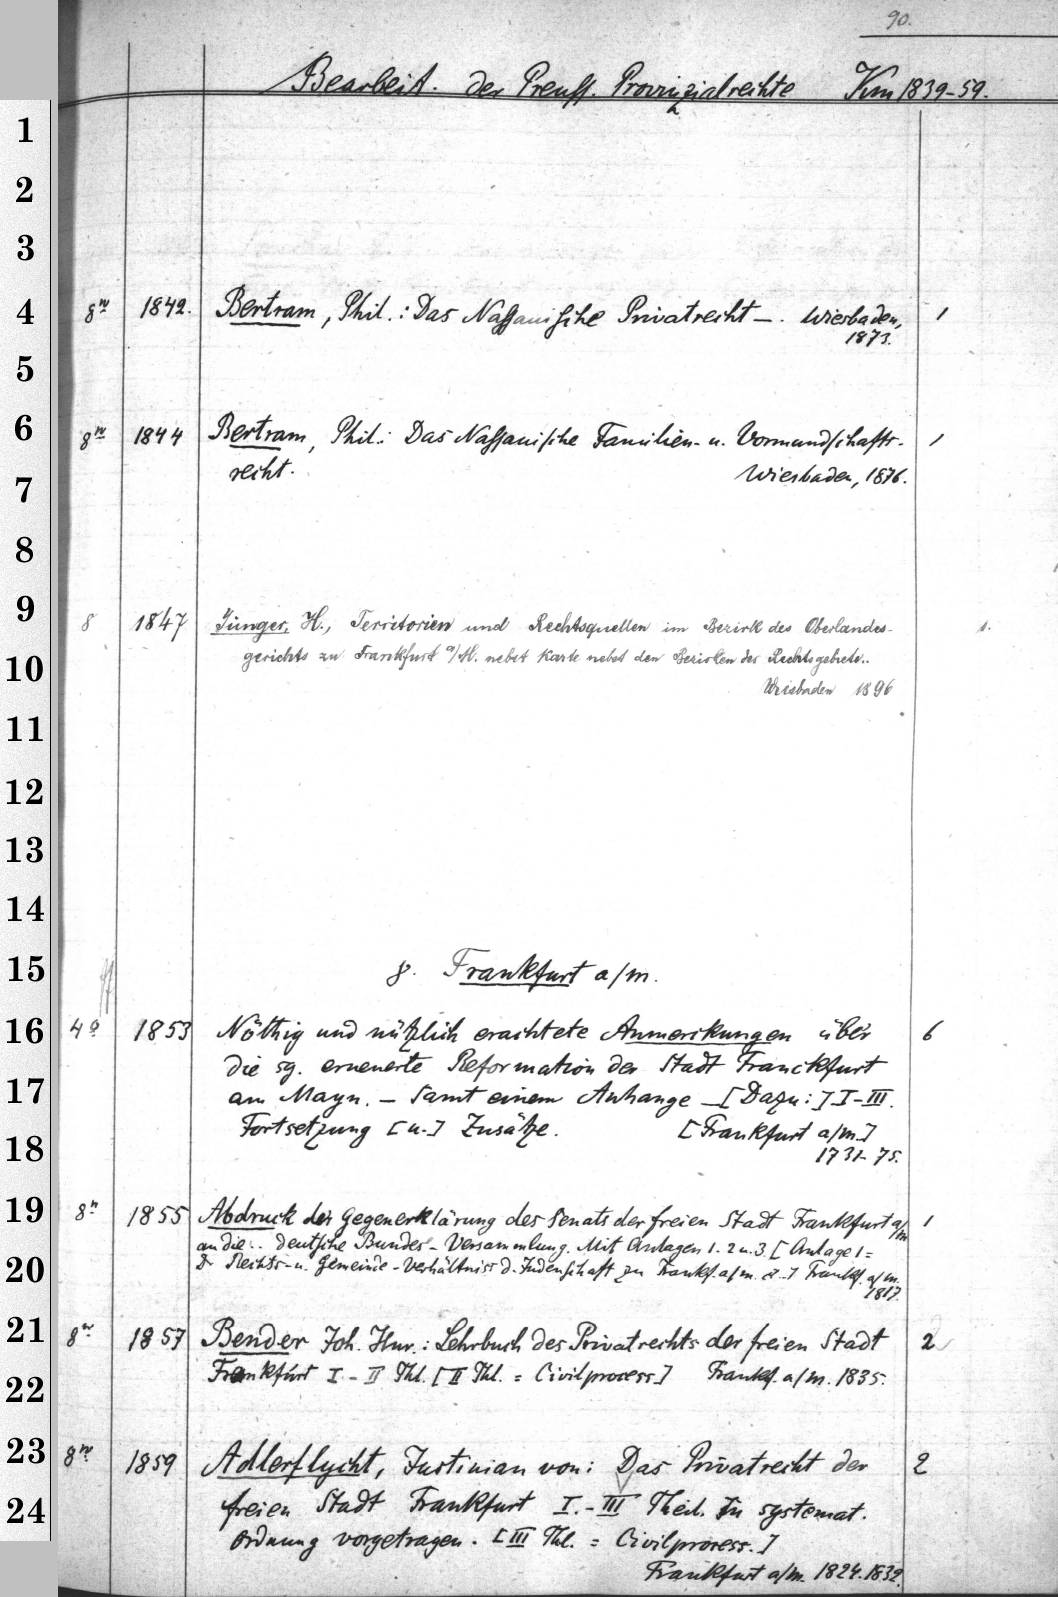 90.
Bearbeit. der Preuss. Provinzialrechte Km 1839-59.
1
2
3
4 8º 1842. Bertram, Phil.: Das Nassauische Privatrecht —. Wiesbaden, 1
1873.
5
6 8º 1844 Bertram, Phil.: Das Nassauische Familien- u. Vormundschafts- 1
recht. Wiesbaden, 1876.
7
8
9 8 1847 Junger, H., Territorien und Rechtsquellen im Bezirk des Oberlandes- 1.
10 gerichts zu Frankfurt a/M. nebst Karte nebst den Bezirken der Rechtsgebiete..
Wiesbaden 1896
11
12
13
14
15 8. Frankfurt a/m.
16 4º 1853 Nöthig und nützlich erachtete Anmerckungen über 6
die sg. erneuerte Reformation der Stadt Franckfurt
17 am Mayn. — Samt einem Anhange — [Dazu:] I-III.
Fortsetzung [u.] Zusätze. [Frankfurt a/m.]
18 1731-75.
19 8º 1855 Abdruck der Gegenerklärung des Senats der freien Stadt Frankfurt a/m 1
an die .. deutsche Bundes-Versammlung. Mit Anlagen 1. 2 u. 3. [Anlage 1 =
20 Rechts- u. Gemeinde-Verhältniss d. Judenschaft zu Frankf. a/m. Frankf. a/m.
1817.
21 8º 1857 Bender Joh. Hnr.: Lehrbuch des Privatrechts der freien Stadt 2
Frankfurt I.-II Thl. [II Thl. = Civilprocess] Frankf. a/m. 1835.
22
23 8º 1859 Adlerflycht, Justinian von: Das Privatrecht der 2
24 freien Stadt Frankfurt I.-III Theil. In systemat.
Ordnung vorgetragen. [III Thl. = Civilprocess.]
Frankfurt a/m. 1824.1832.